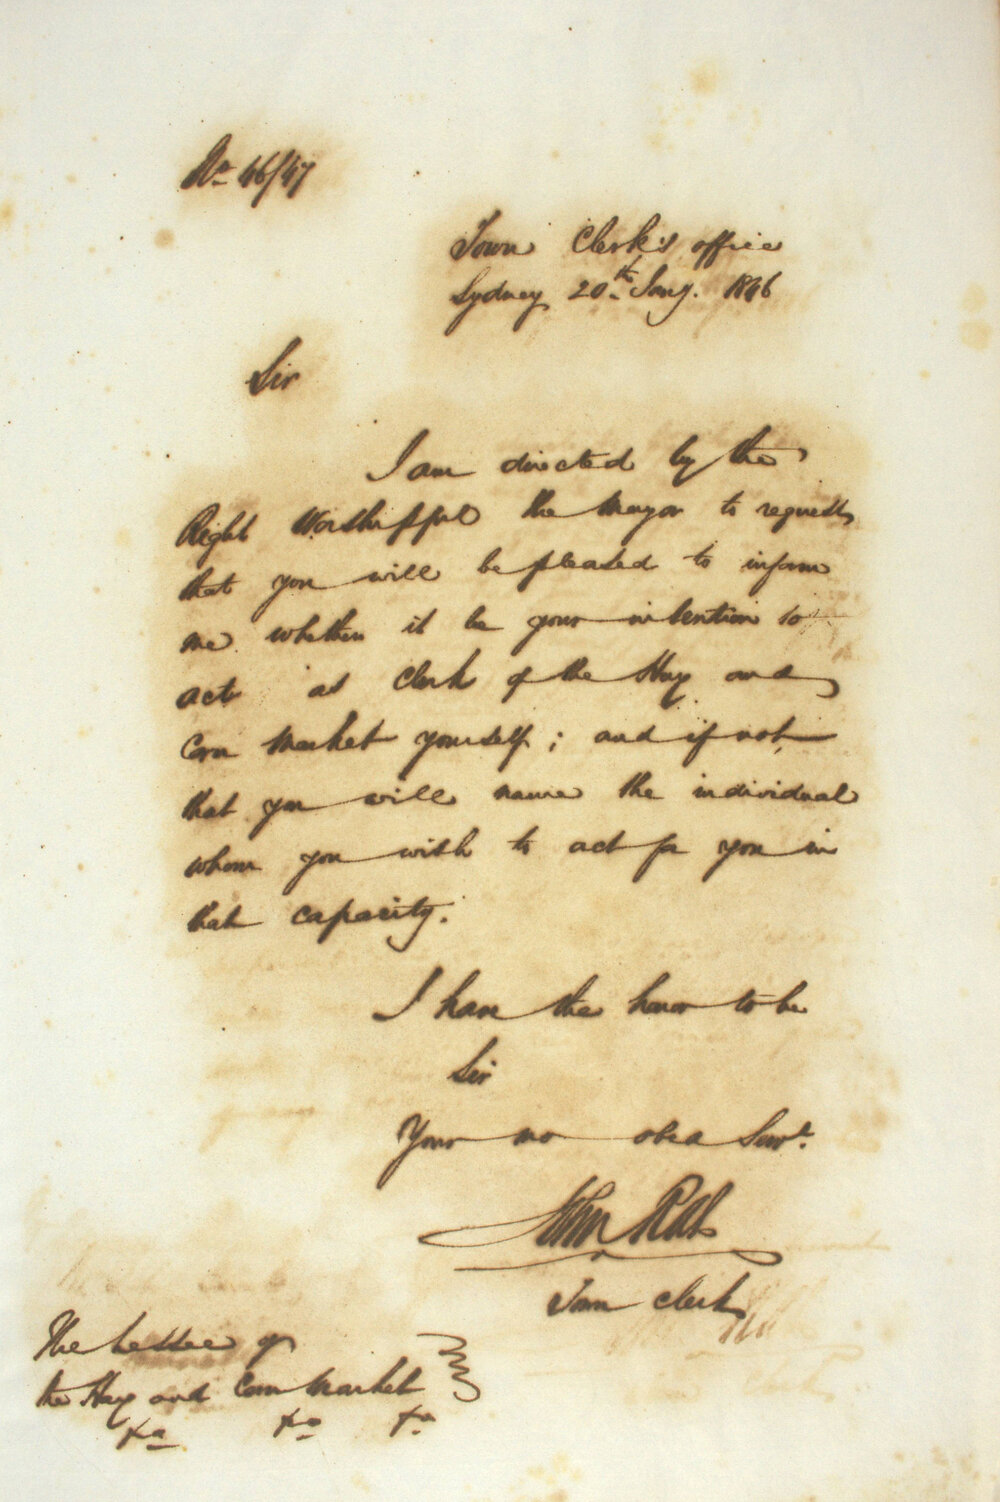 No. 46/47
Town Clerk's office
Sydney 20th Jany. 1846
Sir
I am directed by the
Right Worshipful the Mayor to request
that you will be pleased to inform
me whether it be your intention to
act as Clerk of the Hay and
Corn Market yourself; and if not,
that you will name the individual
whom you wish to act for you in
that capacity.
I have the honor to be
Sir
Your mo obed Servt.
John Rae
Town Clerk
The Lessee of
the Hay and Corn Market
&a &a &a